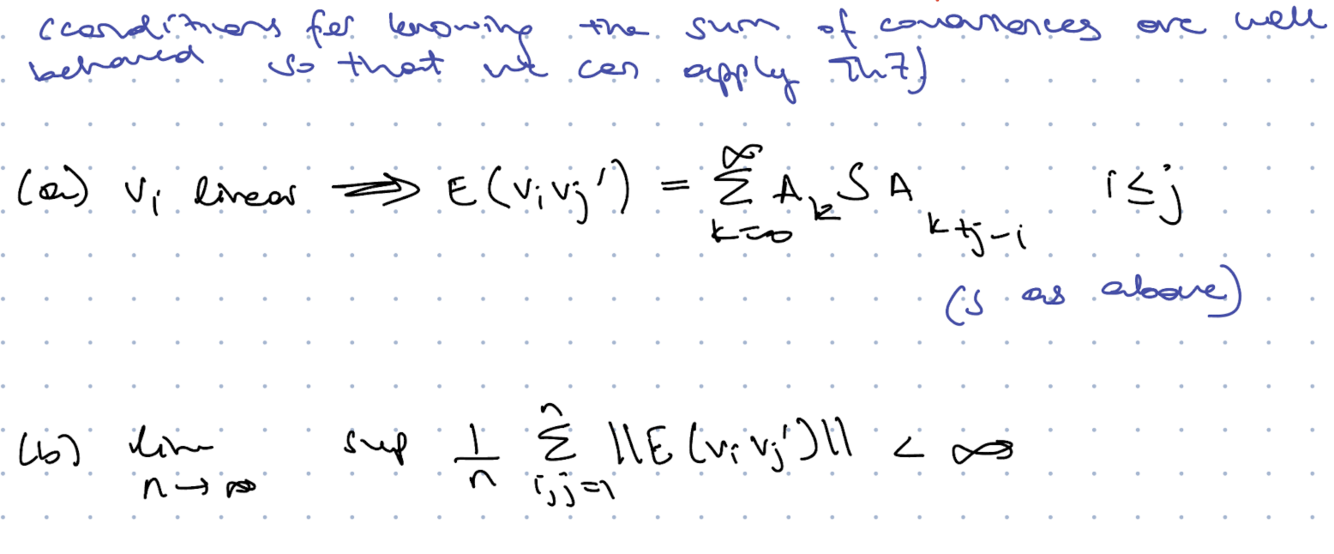 (conditions for knowing the sum of covariances are well
behaved so that we can apply Th7)
(a) vᵢ linear ⟹ E(vᵢvⱼ') = ∑_{k=0}^{∞} A_k S A_{k+j-i} i ≤ j
(S as above)
(b) lim_{n→∞} sup 1/n ∑_{i,j=1}^{n} ||E(vᵢvⱼ')|| < ∞